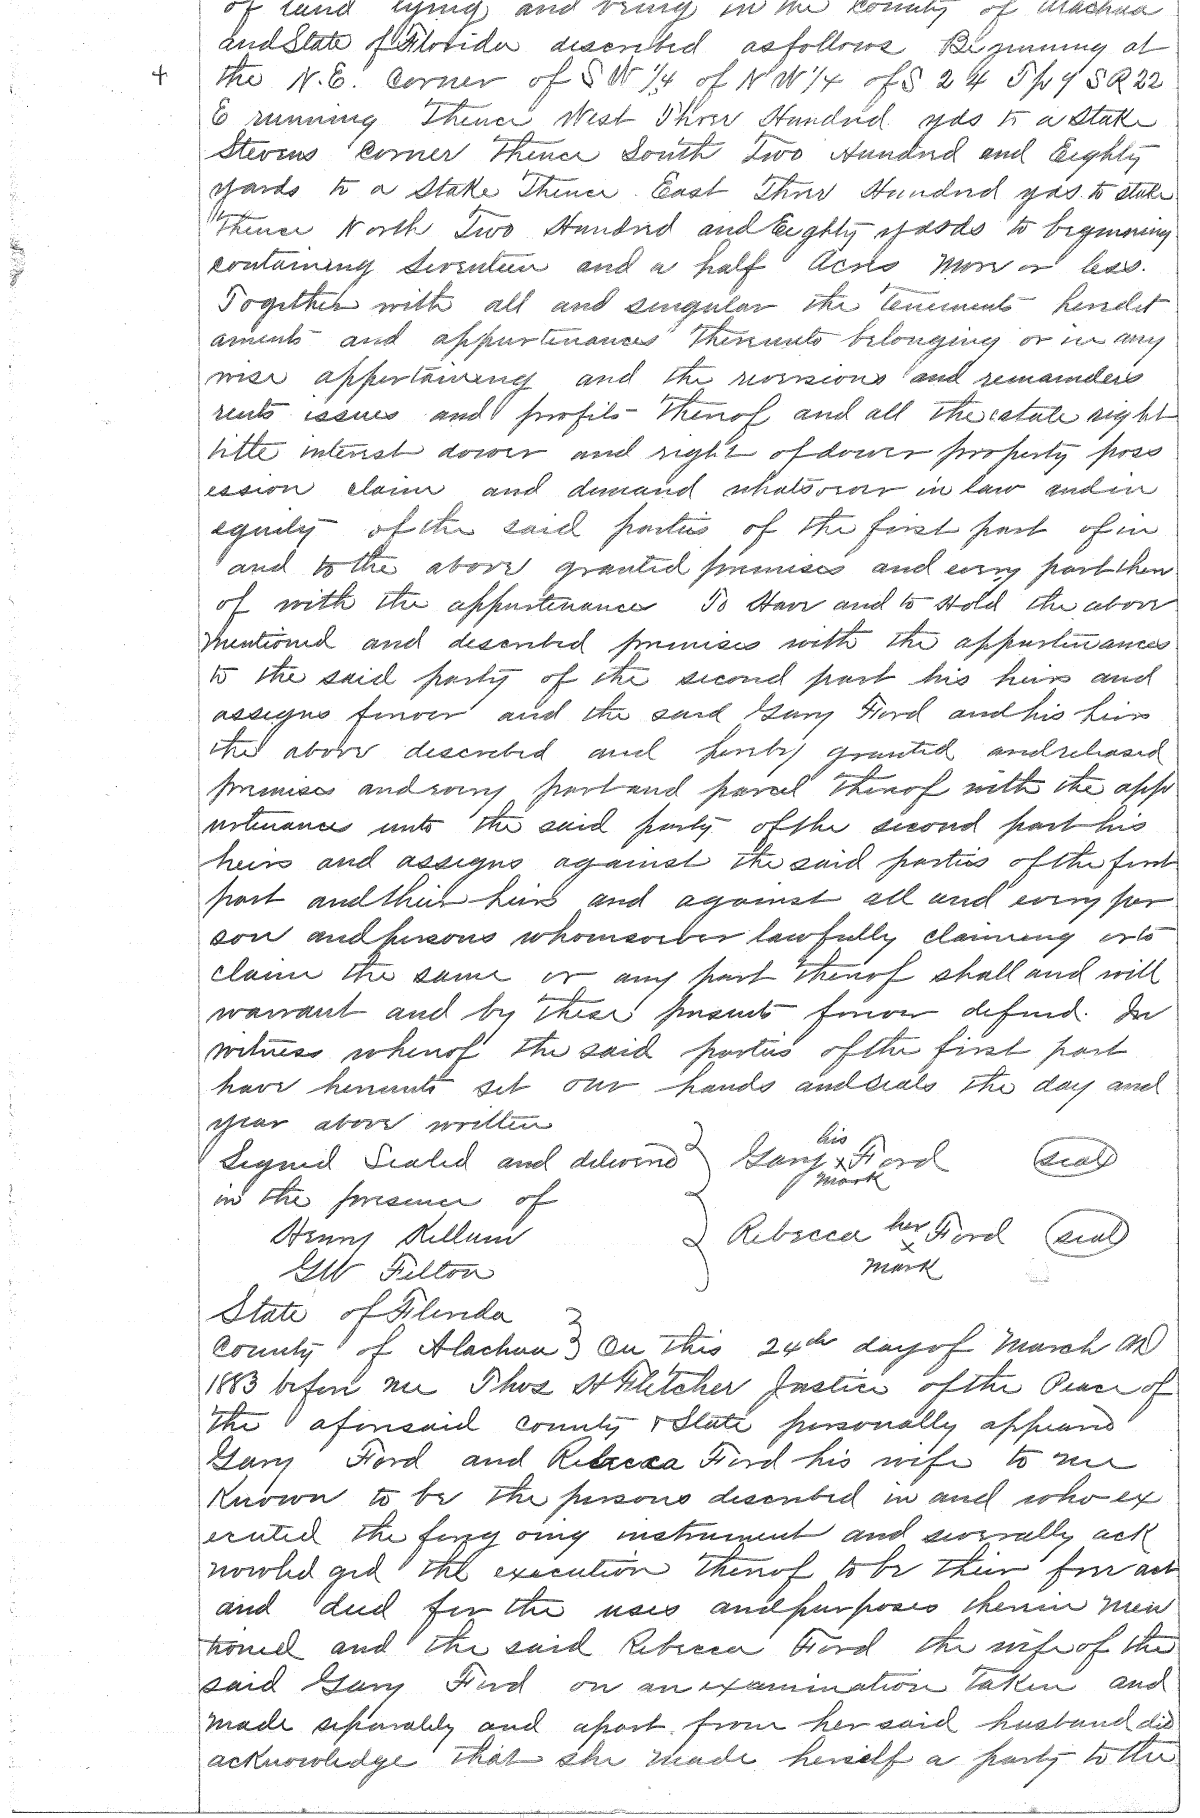 of land lying and being in the County of Alachua
and State of Florida described as follows Beginning at
+ the N.E. Corner of S W 1/4 of N W 1/4 of S 24 Tp 9 S R 22
E running Thence West Three Hundred yds to a Stake
Stevens Corner Thence South Two Hundred and Eighty
yards to a Stake Thence East Three Hundred yds to stake
Thence North Two Hundred and Eighty yards to beginning
containing Seventeen and a half Acres More or less.
Together with all and singular the Tenements heredit
aments and appurtenances Thereunto belonging or in any
wise appertaining and the reversions and remainders
rents issues and profits Thereof and all the estate right
title interest dower and right of dower property poss
ession claim and demand whatsoever in law and in
equity of the said parties of the first part of in
and to the above granted premises and every part there
of with the appurtenances To Have and to Hold the above
mentioned and described premises with the appurtenances
to the said party of the second part his heirs and
assigns forever and the said Gary Ford and his heirs
the above described and hereby granted and released
premises and every part and parcel Thereof with the app
urtenances unto the said party of the second part his
heirs and assigns against the said parties of the first
part and their heirs and against all and every per
son and persons whomsoever lawfully claiming or to
claim the same or any part thereof shall and will
warrant and by these presents forever defend. In
witness whereof the said parties of the first part
have hereunto set our hands and seals the day and
year above written
Signed Sealed and delivered } Gary his x mark Ford (seal)
in the presence of
Henry Kellum } Rebecca her x mark Ford (seal)
GW Felton
State of Florida
County of Alachua } On this 24th day of March AD
1883 before me Thos H Fletcher Justice of the Peace of
the aforesaid county & State personally appeared
Gary Ford and Rebecca Ford his wife to me
Known to be the persons described in and who ex
ecuted the foregoing instrument and severally ack
nowledged the execution Thereof to be their free act
and deed for the uses and purposes therein men
tioned and the said Rebecca Ford the wife of the
said Gary Ford on an examination taken and
made separately and apart from her said husband did
acknowledge that she made herself a party to the